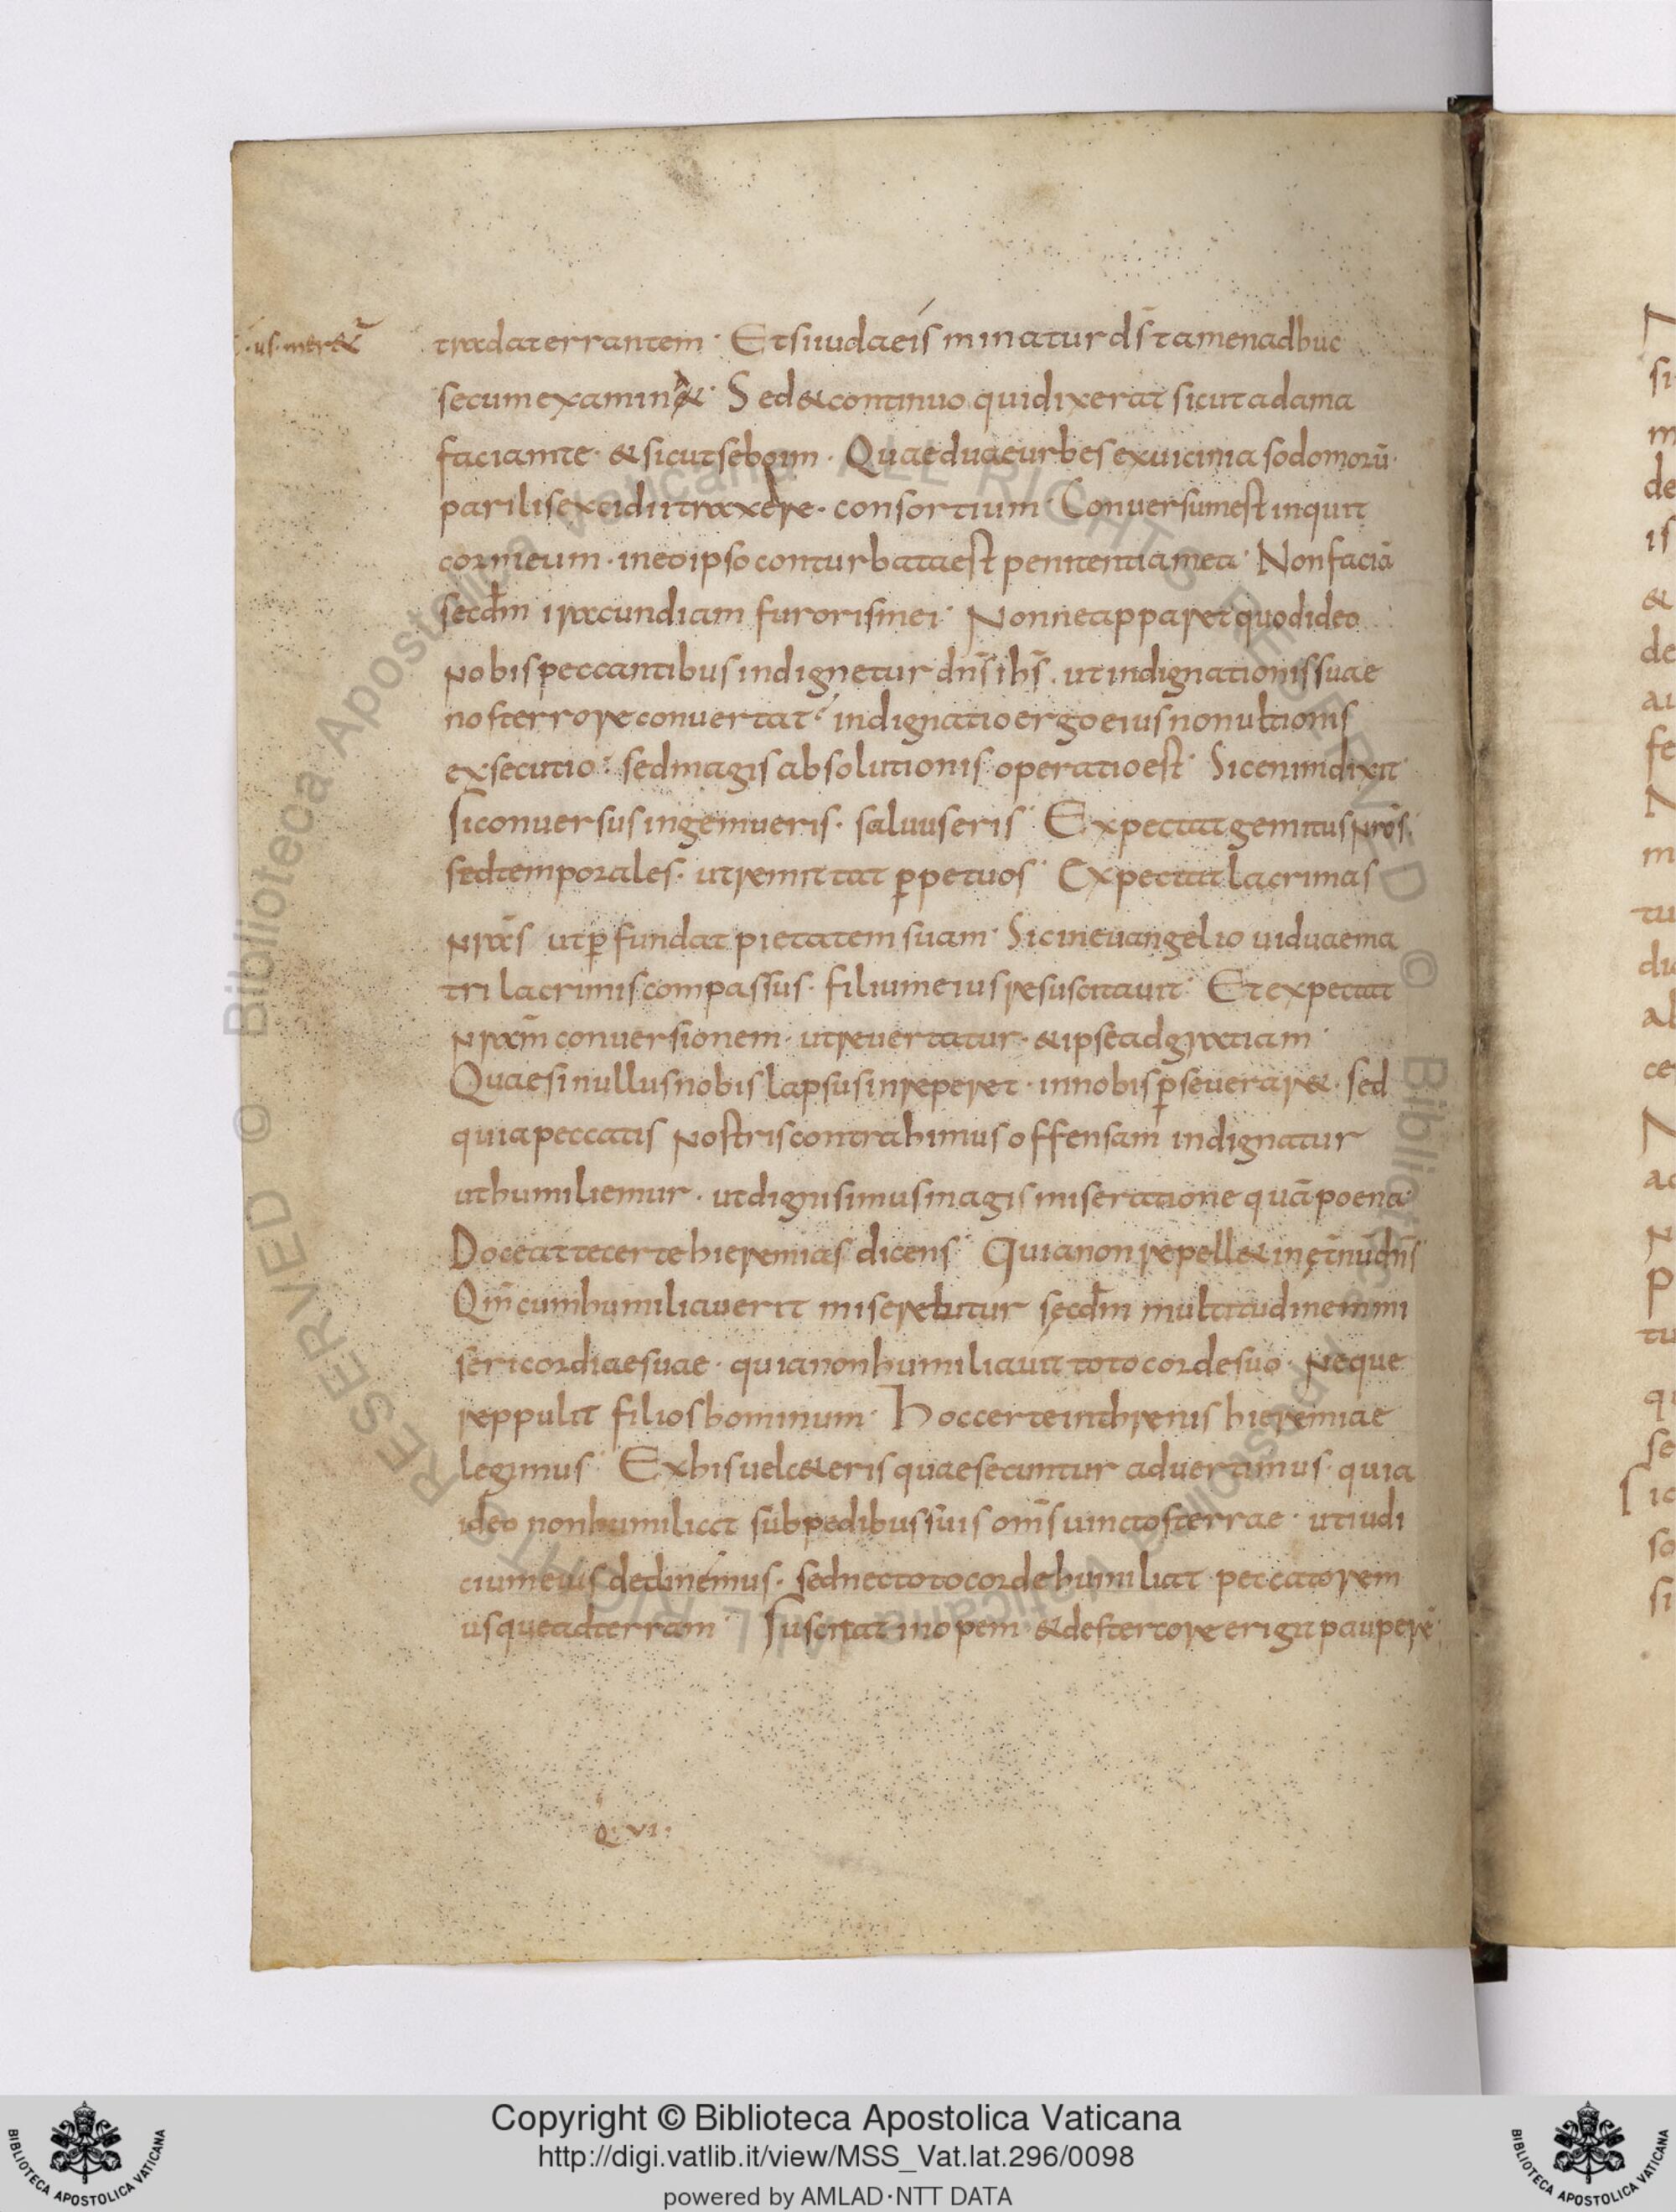 us. mer&
tradat errantem. Et si iudaeis minatur ds̄ tamen adhuc
secum examin&. Sed & continuo qui dixerat sicut adama
faciam te. & sicut seboim. Quae duae urbes ex uicinia sodomorū.
parilis excidii traxere. consortium. Conuersum est inquit
cor meum. in eo ipso conturbata est penitentia mea. Non faciā
secdm̄ iracundiam furoris mei. Nonne apparet quod ideo
nobis peccantibus indignetur dn̄s ih̄s. ut indignationis suae
nos terrore conuertat; indignatio ergo eius non ultionis
exsecutio; sed magis absolutionis operatio est. Sic enim dixit
Si conuersus ingemueris. saluus eris. Expectat gemitus nrōs.
sed temporales. ut remittat p̱petuos. Expectat lacrimas
nrās ut p̱fundat pietatem suam. Sic in euangelio uiduae ma
tri lacrimis compassus. filium eius resuscitauit. Et expectat
nrām conuersionem. ut reuertatur. & ipse ad gratiam.
Quae si nullus nobis lapsus inreperet. in nobis p̱seuerar&. sed
quia peccatis nostris contrahimus offensam indignatur
ut humiliemur. ut digni simus magis miseratione quā poena.
Doceat te certe hieremias dicens. Quia non repell& in ętnū dn̄s
Qm̄ cum humiliauerit miserebitur sęcdm̄ multitudinem mi
sericordiae suae. quia non humiliauit toto corde suo. Neque
reppulit filios hominum. Hoc certe in threnis hieremiae
legimus. Ex his uel c&eris quae secuntur aduertimus. quia
ideo non humiliat sub pedibus suis om̄s uinctos terrae. ut iudi
cium eius declinemus. sed nec toto corde humiliat peccatorem
usque ad terram. Suscitat inopem & de stercore erigit pauperē.
Q. VI.
© Biblioteca Apostolica Vaticana ALL RIGHTS RESERVED © Biblioteca Apostolica Vaticana ALL RIGHTS RESERVED
BIBLIOTECA APOSTOLICA VATICANA
Copyright © Biblioteca Apostolica Vaticana
http://digi.vatlib.it/view/MSS_Vat.lat.296/0098
powered by AMLAD·NTT DATA
BIBLIOTECA APOSTOLICA VATICANA